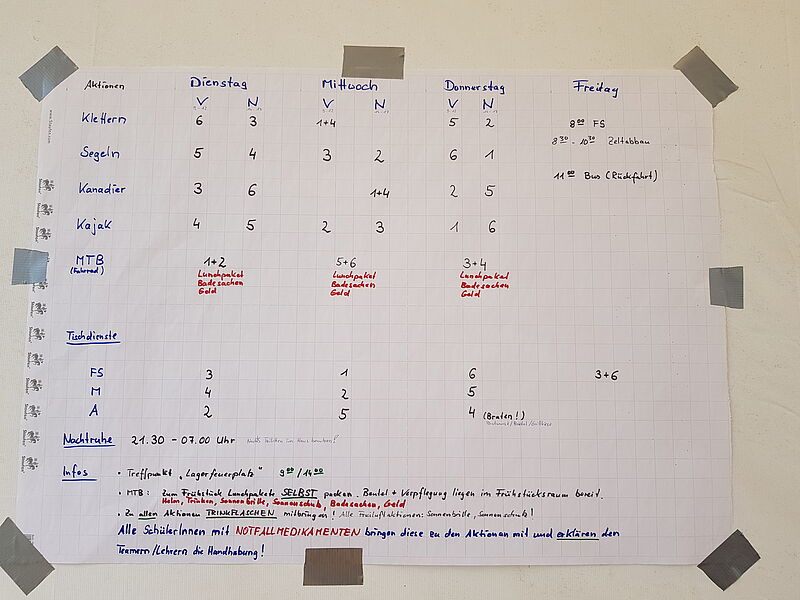 Aktionen Dienstag Mittwoch Donnerstag Freitag
V N V N V N
Klettern 6 3 1+4 5 2 8⁰⁰ FS
Segeln 5 4 3 2 6 1 8³⁰ - 10³⁰ Zeltabbau
Kanadier 3 6 1+4 2 5 11⁰⁰ Bus (Rückfahrt)
Kajak 4 5 2 3 1 6
MTB 1+2 5+6 3+4
(Fahrrad) Lunchpaket Lunchpaket Lunchpaket
Badesachen Badesachen Badesachen
Geld Geld Geld
Tischdienste
FS 3 1 6 3+6
M 4 2 5
A 2 5 4 (Braten!)
Nachtruhe 21.30 - 07.00 Uhr
Infos • Treffpunkt „Lagerfeuerplatz" 9⁰⁰/14⁰⁰
• MTB: Zum Frühstück Lunchpakete SELBST packen. Beutel + Verpflegung liegen im Frühstücksraum bereit.
Helm, Trinken, Sonnenbrille, Sonnenschutz, Badesachen, Geld
• Zu allen Aktionen TRINKFLASCHEN mitbringen! Alle Freiluftaktionen: Sonnenbrille, Sonnenschutz!
Alle SchülerInnen mit NOTFALLMEDIKAMENTEN bringen diese zu den Aktionen mit und erklären den
Teamern/Lehrern die Handhabung!